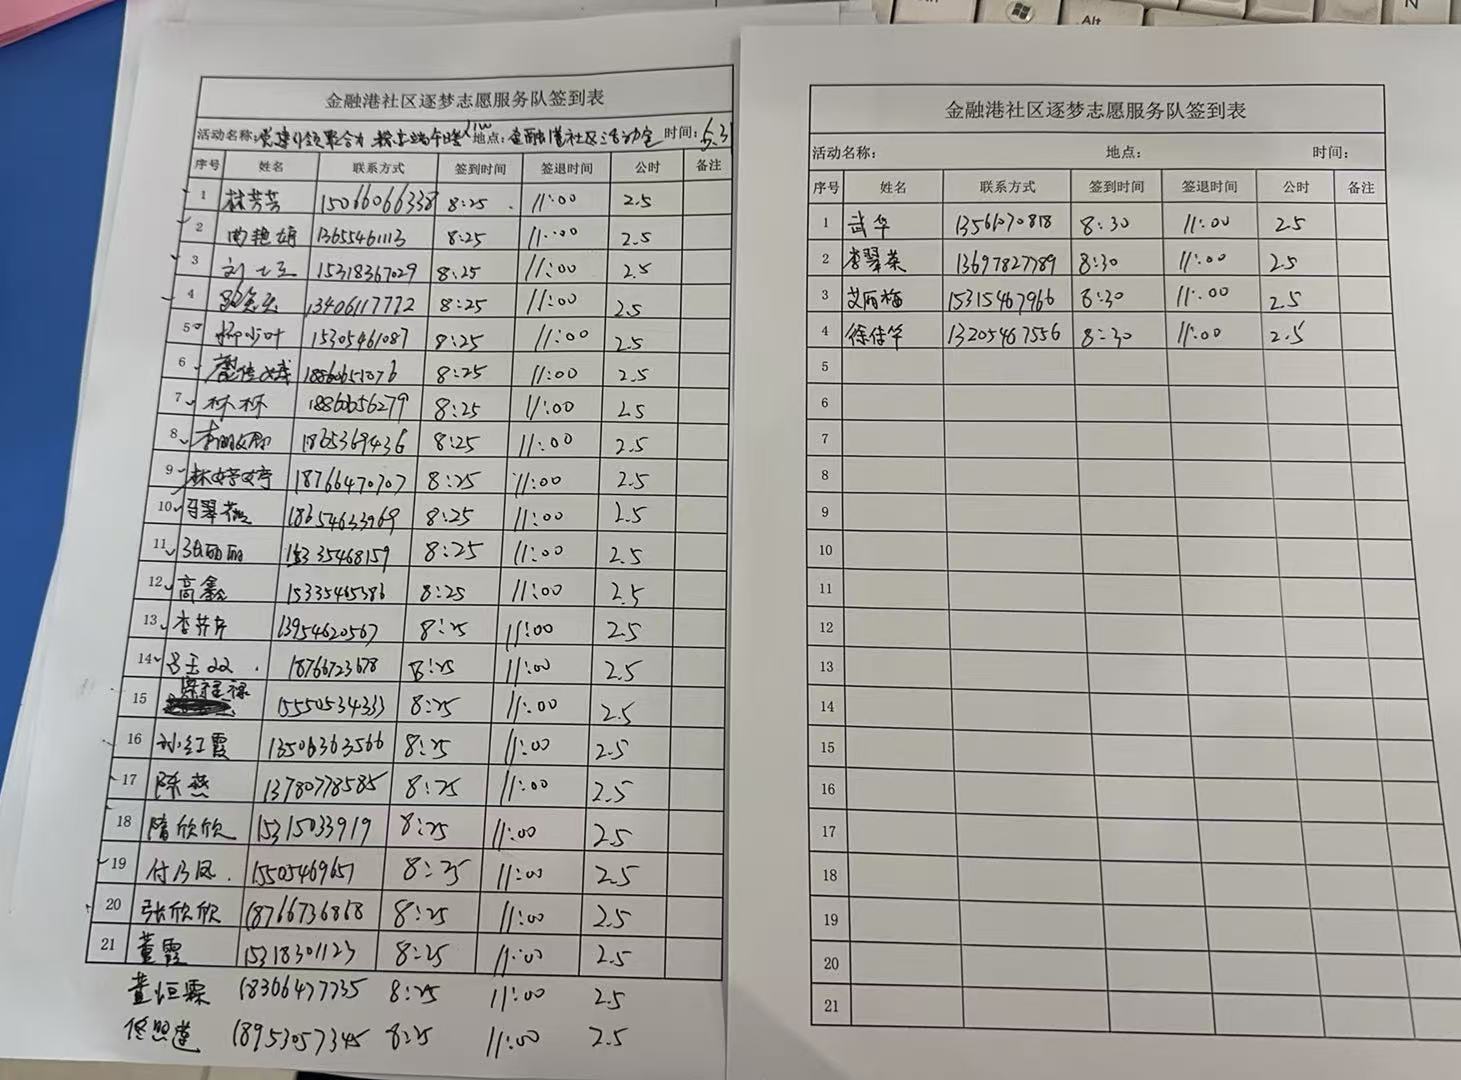 金融港社区逐梦志愿服务队签到表
活动名称: 党建引领聚合力 粽 端午暖 地点: 金融港社区活动室 时间: 5.31
序号 姓名 联系方式 签到时间 签退时间 公时 备注
1 林芳芳 15066066338 8:25 11:00 2.5
2 曲艳婧 13655461113 8:25 11:00 2.5
3 刘 15318367029 8:25 11:00 2.5
4 13406117772 8:25 11:00 2.5
5 柳少叶 15305461087 8:25 11:00 2.5
6 18860651076 8:25 11:00 2.5
7 林林 18860656279 8:25 11:00 2.5
8 李 1865369436 8:25 11:00 2.5
9 林婷婷 18766470707 8:25 11:00 2.5
10 18654633969 8:25 11:00 2.5
11 张丽丽 15335468159 8:25 11:00 2.5
12 高鑫 15335465386 8:25 11:00 2.5
13 李芹芹 13954620567 8:25 11:00 2.5
14 吕玉双 18766723678 8:25 11:00 2.5
15 15550534333 8:25 11:00 2.5
16 孙红霞 13506363566 8:25 11:00 2.5
17 陈燕 13780778585 8:25 11:00 2.5
18 隋欣欣 15315033919 8:25 11:00 2.5
19 付乃凤 15505469651 8:25 11:00 2.5
20 张欣欣 18766736868 8:25 11:00 2.5
21 董霞 15318301123 8:25 11:00 2.5
董恒霖 18366477735 8:25 11:00 2.5
佟照莲 18953057345 8:25 11:00 2.5
金融港社区逐梦志愿服务队签到表
活动名称: 地点: 时间:
序号 姓名 联系方式 签到时间 签退时间 公时 备注
1 武华 1356170818 8:30 11:00 2.5
2 李翠荣 13697827789 8:30 11:00 2.5
3 艾丽梅 15315467966 8:30 11:00 2.5
4 徐佳华 13205467556 8:30 11:00 2.5
5
6
7
8
9
10
11
12
13
14
15
16
17
18
19
20
21
Alt
N